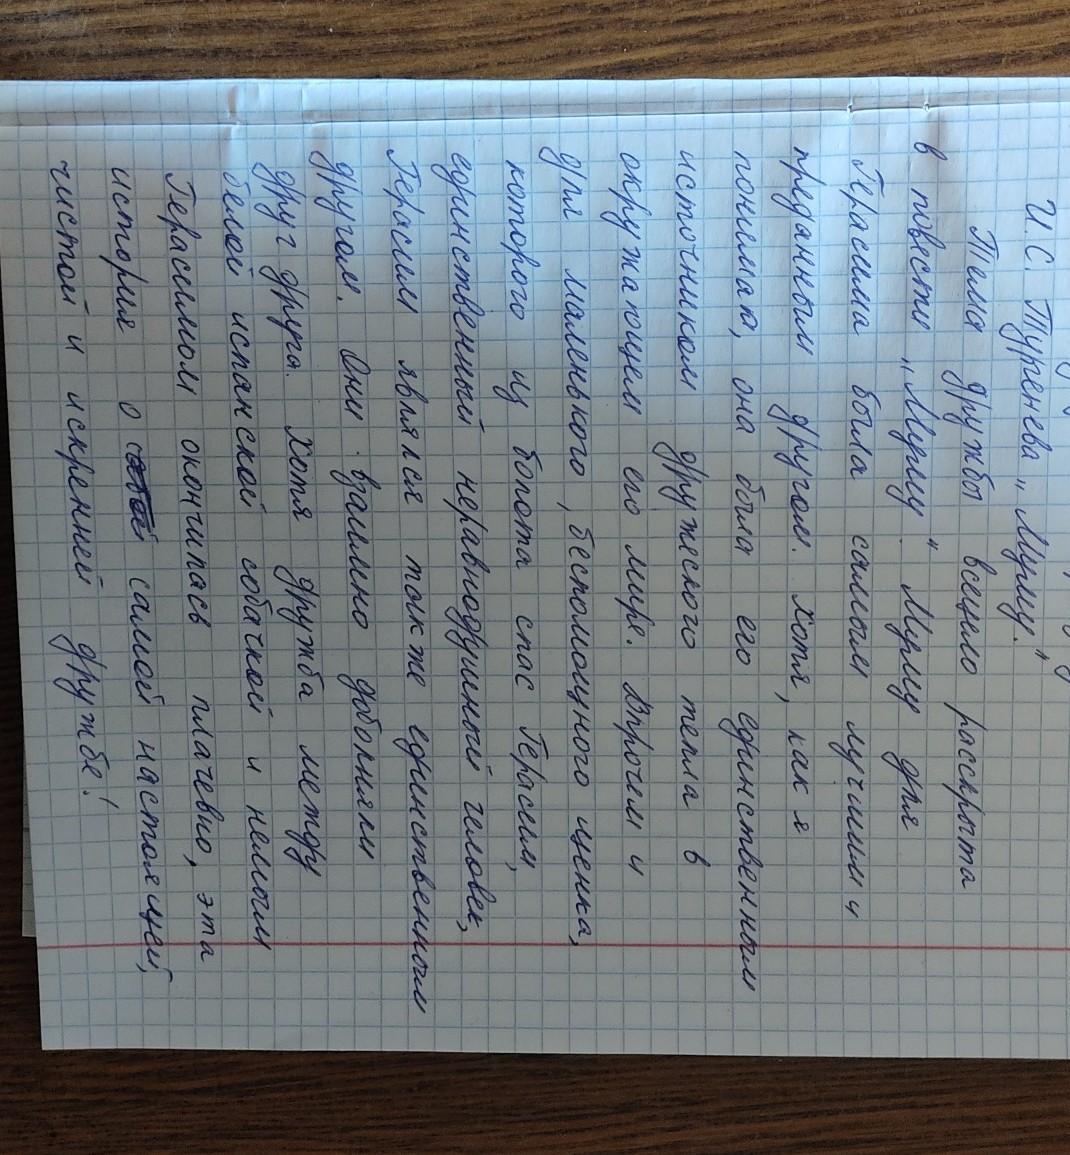 И.С. Тургенева „Муму."
Тема дружбы всецело расскрыта
в повести „Муму". Муму для
Герасима была самым лучшим и
преданным другом. Хотя, как я
понимаю, она была его единственным
источником дружеского тепла в
окружающем его мире. Впрочем и
для маленького, беспомощного щенка,
которого из болота спас Герасим,
единственный неравнодушный человек,
Герасим являлся также единственным
другом. Они взаимно доболняли
друг друга. Хотя дружба между
белой испанской собачкой и немым
Герасимом окончилась плачевно, эта
история о самой настоящей,
чистой и искренней дружбе!